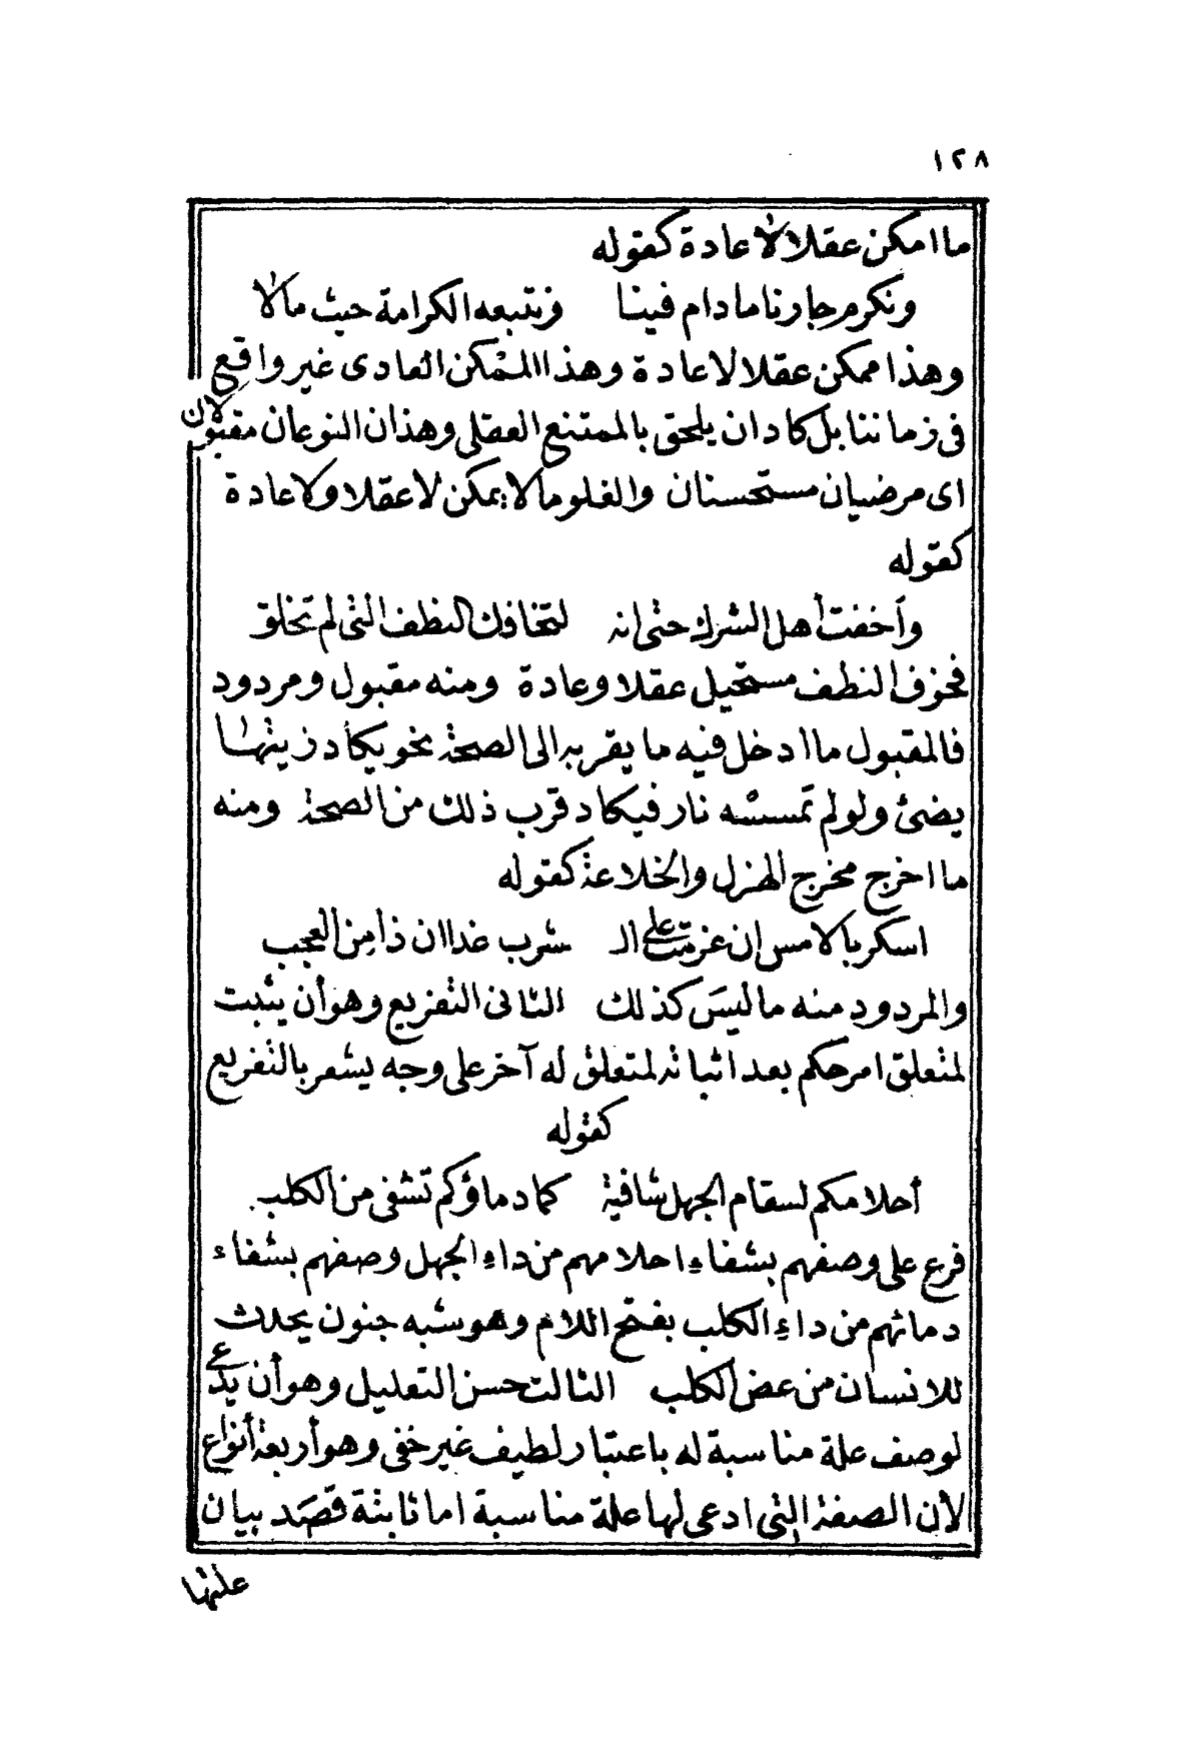 ١٢٨
ما امكن عقلا لا عادة كقوله
ونكرم جارنا ما دام فينا ونتبعه الكرامة حيث مالا
وهذا ممكن عقلا لا عادة وهذا الممكن العادى غير واقع
فى زماننا بل كاد ان يلحق بالممتنع العقلى وهذان النوعان مقبولان
اى مرضيان مستحسنان والغلو مالا يمكن لا عقلا ولا عادة
كقوله
وأخفت أهل الشرك حتى انه لتخافك النطف التى لم تخلق
فخوف النطف مستحيل عقلا وعادة ومنه مقبول ومردود
فالمقبول ما ادخل فيه ما يقربه الى الصحة نحو يكاد زيتها
يضئ ولو لم تمسسه نار فيكاد قرب ذلك من الصحة ومنه
ما اخرج مخرج الهزل والخلاعة كقوله
اسكر بالامس إن عزمت على الـ شرب غدا ان ذا من العجب
والمردود منه ما ليسَ كذلك الثانى التفريع وهو أن يثبت
لمتعلق امر حكم بعد اثباته لمتعلق له آخر على وجه يشعر بالتفريع
كقوله
أحلامكم لسقام الجهل شافية كما دماؤكم تشفى من الكلب
فرع على وصفهم بشفاء احلامهم من داء الجهل وصفهم بشفاء
دمائهم من داء الكلب بفتح اللام وهو شبه جنون يحدث
للانسان من عض الكلب الثالث حسن التعليل وهو أن يدعى
لوصف علة مناسبة له باعتبار لطيف غير خفى وهو أربعة أنواع
لأن الصفة التى ادعى لها علة مناسبة اما ثابتة قصد بيان
علتها